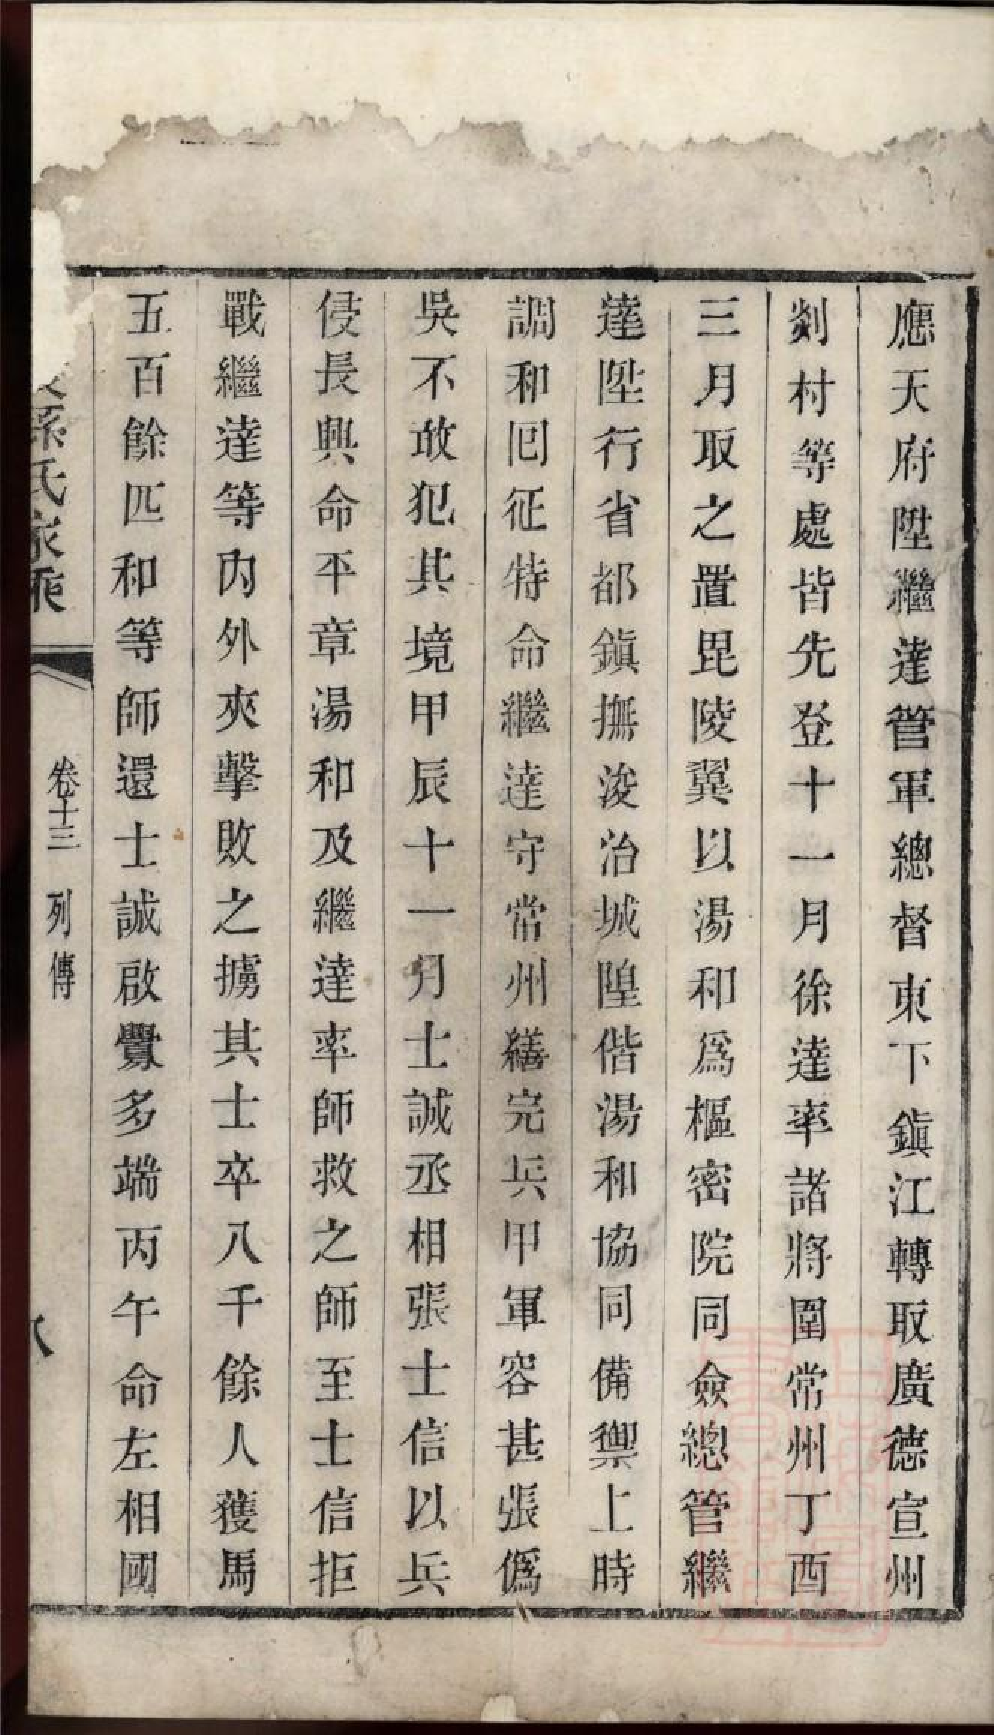 應天府陞繼達管軍總督東下鎭江轉取廣德宣州
剡村等處皆先登十一月徐達率諸將圍常州丁酉
三月取之置毘陵翼以湯和爲樞密院同僉總管繼
達陞行省都鎭撫浚治城隍偕湯和協同備禦上時
調和囘征特命繼達守常州繕完兵甲軍容甚張僞
吳不敢犯其境甲辰十一月士誠丞相張士信以兵
侵長興命平章湯和及繼達率師救之師至士信拒
戰繼達等內外夾擊敗之擄其士卒八千餘人獲馬
五百餘匹和等師還士誠啟釁多端丙午命左相國
孫氏家乘 卷十三 列傳 八